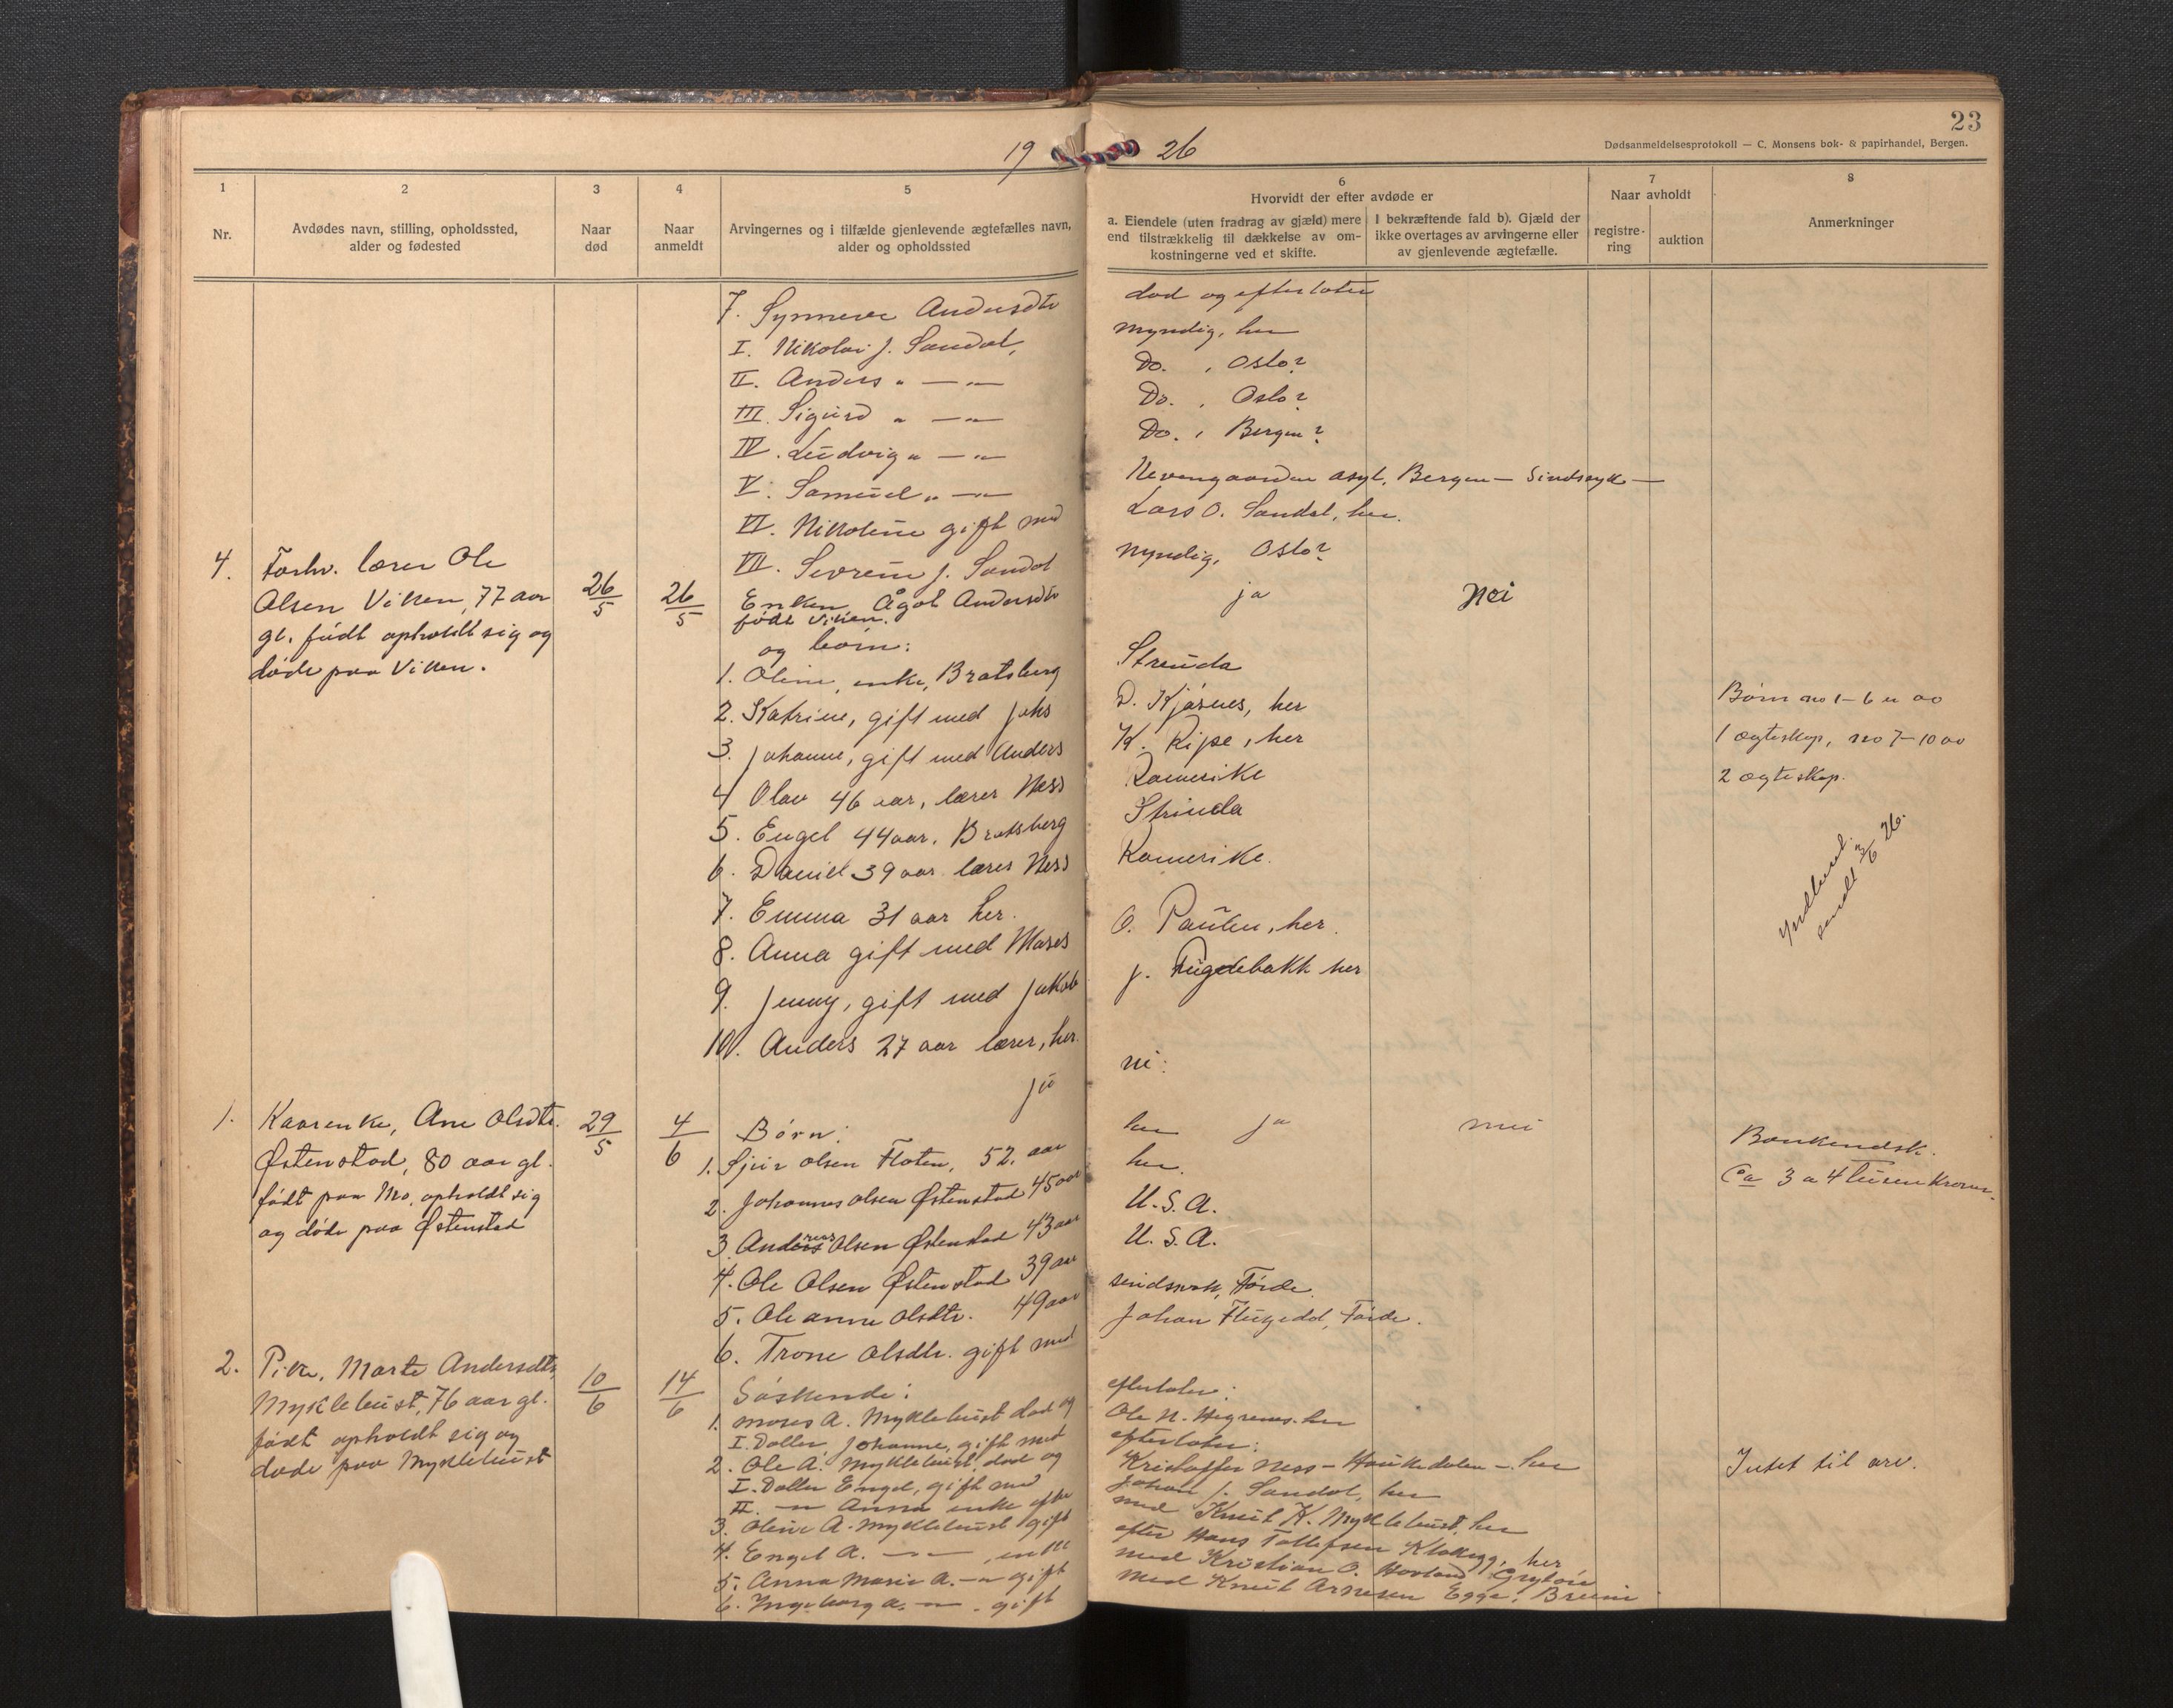 23
19 26
Dødsanmeldelsesprotokoll — C. Monsens bok- & papirhandel, Bergen.
1
Nr.
2
Avdødes navn, stilling, opholdssted,
alder og fødested
3
Naar
død
4
Naar
anmeldt
5
Arvingernes og i tilfælde gjenlevende ægtefælles navn,
alder og opholdssted
6
Hvorvidt der efter avdøde er
a. Eiendele (uten fradrag av gjæld) mere
end tilstrækkelig til dækkelse av om-
kostningerne ved et skifte.
I bekræftende fald b). Gjæld der
ikke overtages av arvingerne eller
av gjenlevende ægtefælle.
7
Naar avholdt
registre-
ring
auktion
8
Anmerkninger
7. Synneve Andersdtr død og efterlater
I. Nikolai J. Sandal, myndig, her
II. Anders " — " — Do. , Oslo?
III. Sigurd " — " — Do. , Oslo?
IV. Ludvig " — " — Do. , Bergen?
V. Samuel " — " — Nevengaarden asyl, Bergen — Sindssyk —
VI. Nikoline gift med Lars O. Sandal, her.
VII. Severin J. Sandal myndig, Oslo?
4. Forhv. lærer Ole
Olsen Viken, 77 aar
gl. født opholdt sig og
døde paa Viken.
26/5 26/5
Enken Ågot Andersdtr ja Nei
født Viken.
og børn:
1. Oline, enke, Bratsberg Strinda
2. Katrine, gift med Johs D. Kjøsnes, her
3. Johanne, gift med Anders K. Ripe, her
4 Olav 46 aar, lærer Næss Romerike
5. Engel 44 aar, Bratsberg Strinda
6. Daniel 39 aar lærer Ness Romerike.
7. Emma 31 aar her.
8. Anna gift med Moses O. Paulen, her.
9. Jenny, gift med Jakob J. Fuglebakk her
10. Anders 27 aar lærer, her.
ja nei.
Børn no 1-6 er av
1 ægteskap, no 7-10 av
2 ægteskap.
Indberet.
sendt /6 26.
1. Kaarenke, Ane Olsdtr.
Østenstad, 80 aar gl.
født paa Mo, opholdt sig
og døde paa Østenstad
29/5 4/6
Børn: ja nei
1. Sjur Olsen Floten, 52, aar her
2. Johannes Olsen Østenstad 45 aar her.
3. Andreas Olsen Østenstad 43 aar U.S.A.
4. Ole Olsen Østenstad 39 aar U.S.A.
5. Oleanne Olsdtr. 49 aar sindssvak, Førde.
6. Trone Olsdtr. gift med Johan Flugedal, Førde.
Bankendsk.
Ca 3 a 4 tusen kroner.
2. Pike, Marte Andersdtr
Myklebust, 76 aar gl.
født opholdt sig og
døde paa Myklebust
10/6 14/6
Søskende:
1. Moses A. Myklebust død og efterlater:
I. Datter, Johanne, gift med Ole N. Hegrenes her
2. Ole A. Myklebust, død og efterlater:
I. Datter Engel, gift med Kristoffer Ness — Haukedalen — her
II. — " — Anna enke efter Johan J. Sandal, her
3. Oline A. Myklebust gift med Knut K. Myklebust, her
4. Engel A. — " — , enke efter Hans Tollefsen Klakegg, her
5. Anna Marie A. — " gift med Kristian O. Hovland
6. Ingeborg A. — " — . gift med Knut Arnesen Egge,
Intet til arv.